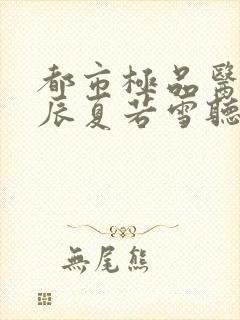 都市極品醫
辰夏若雪聽
無尾熊